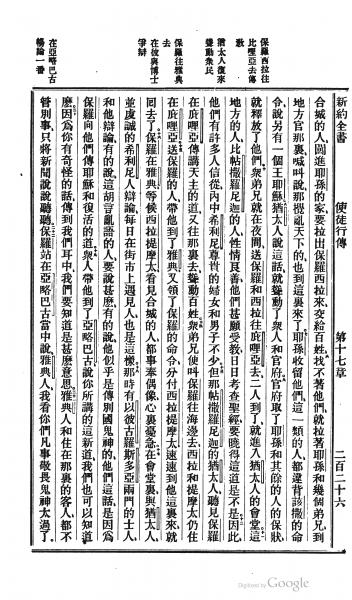 新約全書 使徒行傳 第十七章 二百二十六
合城的人闖進耶孫的家要拉出保羅西拉來交給百姓找不著他們就拉著耶孫和幾個弟兄到
地方官那裏喊叫說那攪亂天下的也到這裏來了耶孫收留他們這一類的人都違背該撒的命
令說另有一個王耶穌猶太人說這話就聳動了衆人和官府官府取了耶孫和其餘的人的保狀
就釋放了他們衆弟兄就在夜間送保羅和西拉往庇哩亞去二人到了就進入猶太人的會堂這
地方的人比帖撒羅尼迦的人性情良善他們甚願受教日日考查聖經要曉得這道是不是因此
他們有許多人信從內中希利尼尊貴的婦女和男子不少但那帖撒羅尼迦的猶太人聽見保羅
在庇哩亞傳講天主的道又往那裏去聳動百姓衆弟兄便叫保羅往海邊去西拉和提摩太仍住
在庇哩亞送保羅的人帶他到了雅典又領了保羅的命令分付西拉提摩太速速到他這裏來就
回去了保羅在雅典等候西拉提摩太看見合城的人都事奉偶像心裏憂急在會堂裏與猶太人
並虔誠的希利尼人辯論每日在街市上遇見人也是這樣那時有以彼古羅斯多亞兩門的士人
和他辯論有的說這胡言亂語的人要說甚麼有的說他似乎是傳別國鬼神的他們這話是因爲
保羅向他們傳耶穌和復活的道衆人帶他到了亞略巴古說你所講的這新道我們也可以知道
麼因爲你有奇怪的話傳到我們耳中我們要知道是甚麼意思雅典人和住在那裏的客人都不
管別事只將新聞說說聽聽保羅站在亞略巴古當中說雅典人我看你們凡事敬畏鬼神太過了
保羅西拉往
比哩亞去傳
教
猶太人復來
聳動衆民
保羅往雅典
去
在彼與博士
爭辯
在亞略巴古
暢論一番
Digitized by Google